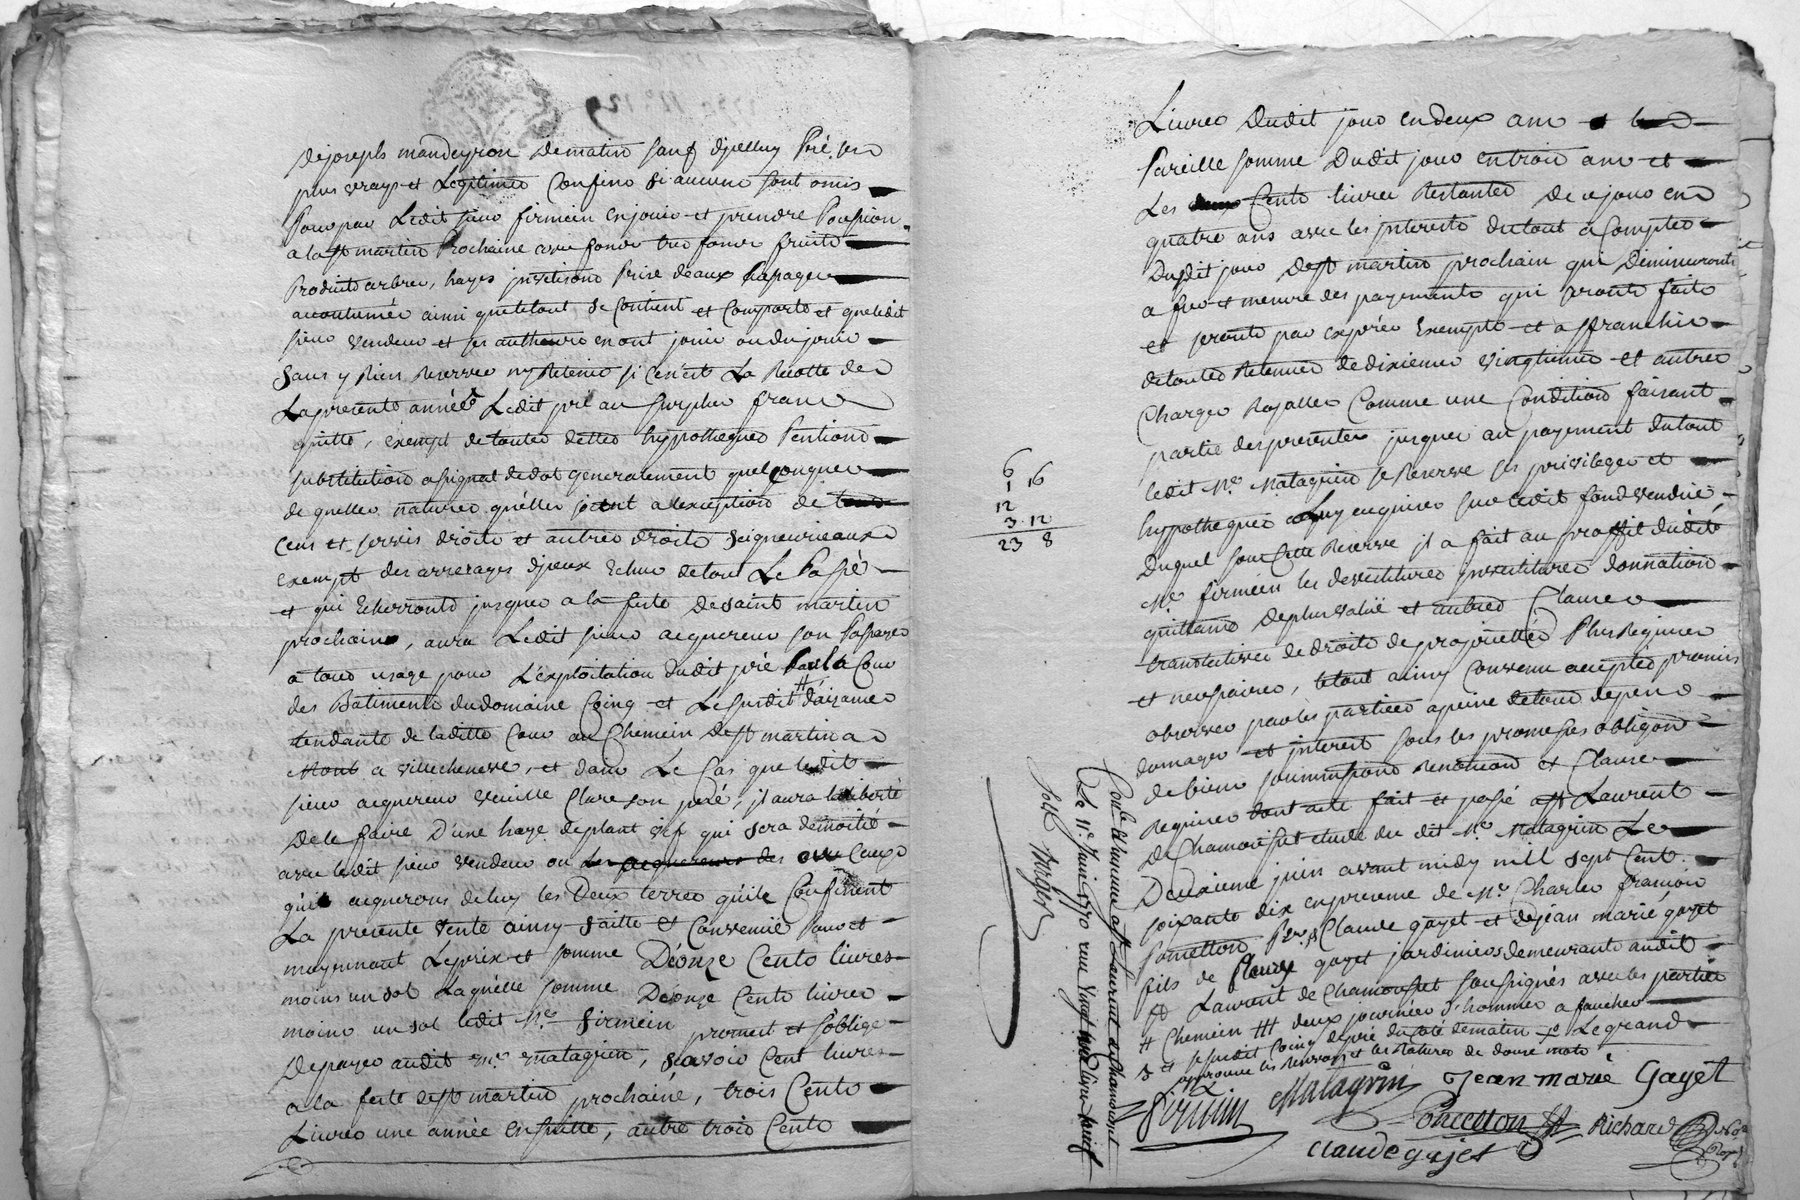 de joseph mandeyron de matin sauf dyelluy pré ses
plus vrays et Legitimes Confins si aucuns sont omis
Pour par Ledit sieur firmein en jouir et prendre Possession
a la st martin Prochaine avec fonds tres fonds fruits
Produits arbres, hayes Prise deaux
accoutumés ainsi que le tout se Contient et Comporte et que ledit
sieur vendeur et ses autheurs en ont joui ou du jouir
Sans y Rien Reserver ny Retenir si Cen'est La Recolte de
La presente année Ledit pré au surplus franc
quitte, exempt de toutes dettes hyppotheques Pentions
substitutions assignat de dot generalement quelconques
de quelles natures qu'elles soient a lexception de
Cens et servis droits et autres droits seigneuriaux
exempt des arrerages dyceux Echus de tout Le Passé
et qui Echerronts jusques a la feste de saint martin
prochain, aura Ledit sieur acquereur son Passage
a tous usage pour L'exploitation dudit pré Par la Cour
des Batiments du domaine Coing et Le susdit d'aizances
tendante de laditte Cour au Chemein de st martin a
Mont a villecheneve, et dans Le Cas que ledit
sieur acquereur veuille Clore son pré, il aura la liberté
De le faire D'une haye de plant vif qui sera de moitié
avec ledit sieur vendeur ou les acquereurs des Ceux
qui acquerons de luy les Deux terres qu'ils Confinent
La presente vente ainsy faitte et Convenue Pour et
moyennant Le prix et somme De onze Cents livres
moins un sol Laquelle somme De onze Cents livres
moins un sol ledit Me. firmein promet et soblige
De payer audit me. matagrin, savoir Cent livres
a la feste de st martin prochaine, trois Cents
Livres une année Ensuitte, autre trois Cents
Livres Dudit jour en deux ans
Pareille somme Dudit jour en trois ans et
Les Cents livres Restantes De ce jour en
quatre ans avec les jnterests du tout a Compter
Dudit jour De st martin prochain qui Diminueronts
a fur et mesure des payements qui seronts faits
et seronts par exprès Exempts et affranchis
de toutes Retenues de dixiemes vingtiemes et autres
Charges Royalles Comme une Condition faisant
partie des presentes jusques au payement du tout
ledit Me. Matagrin se Reserve ses privileges et
hypotheques sur ledit fond vendu
Duquel sous Cette Reserve il a fait au proffit dudit
Me firmein les devestitures jnvestitures donnations
quittance de plus value et autres Clauses
translatives de droits de proprietté Plus Requises
et necessaires, le tout ainsy Convenu accepté promis
observer par les parties a peine de tous depens
domages et interest sous les promesses obligons
de biens soummissions Renonciaons et Clauses
Requises dont acte fait et passé a st Laurent
de Chamousset etude du dit Me Matagrin Le
Deuxieme juin avant midy mill sept Cent
soixante dix en presence de Me. Charles françois
Poncetton Claude gayet et de jean marie gayet
fils de fleury gayet jardiniers demeurants audit
st Laurent de Chamousset soussignés avec les parties
# Chemein ### deux journées d'hommes a faucher
et susdit Coing de pré du Coté de matin Le grand
approuvé les Renvoys et les Ratures de douze mots
firmin Matagrin Jean marie Gayet
Poncetton Richard
Claude gayet
6
1 16
12
3. 12
23 8
Conlé et Insinué a st Laurent de Chamousset
Le 11e. Juin 1770 reçu vingt trois livres huit s.